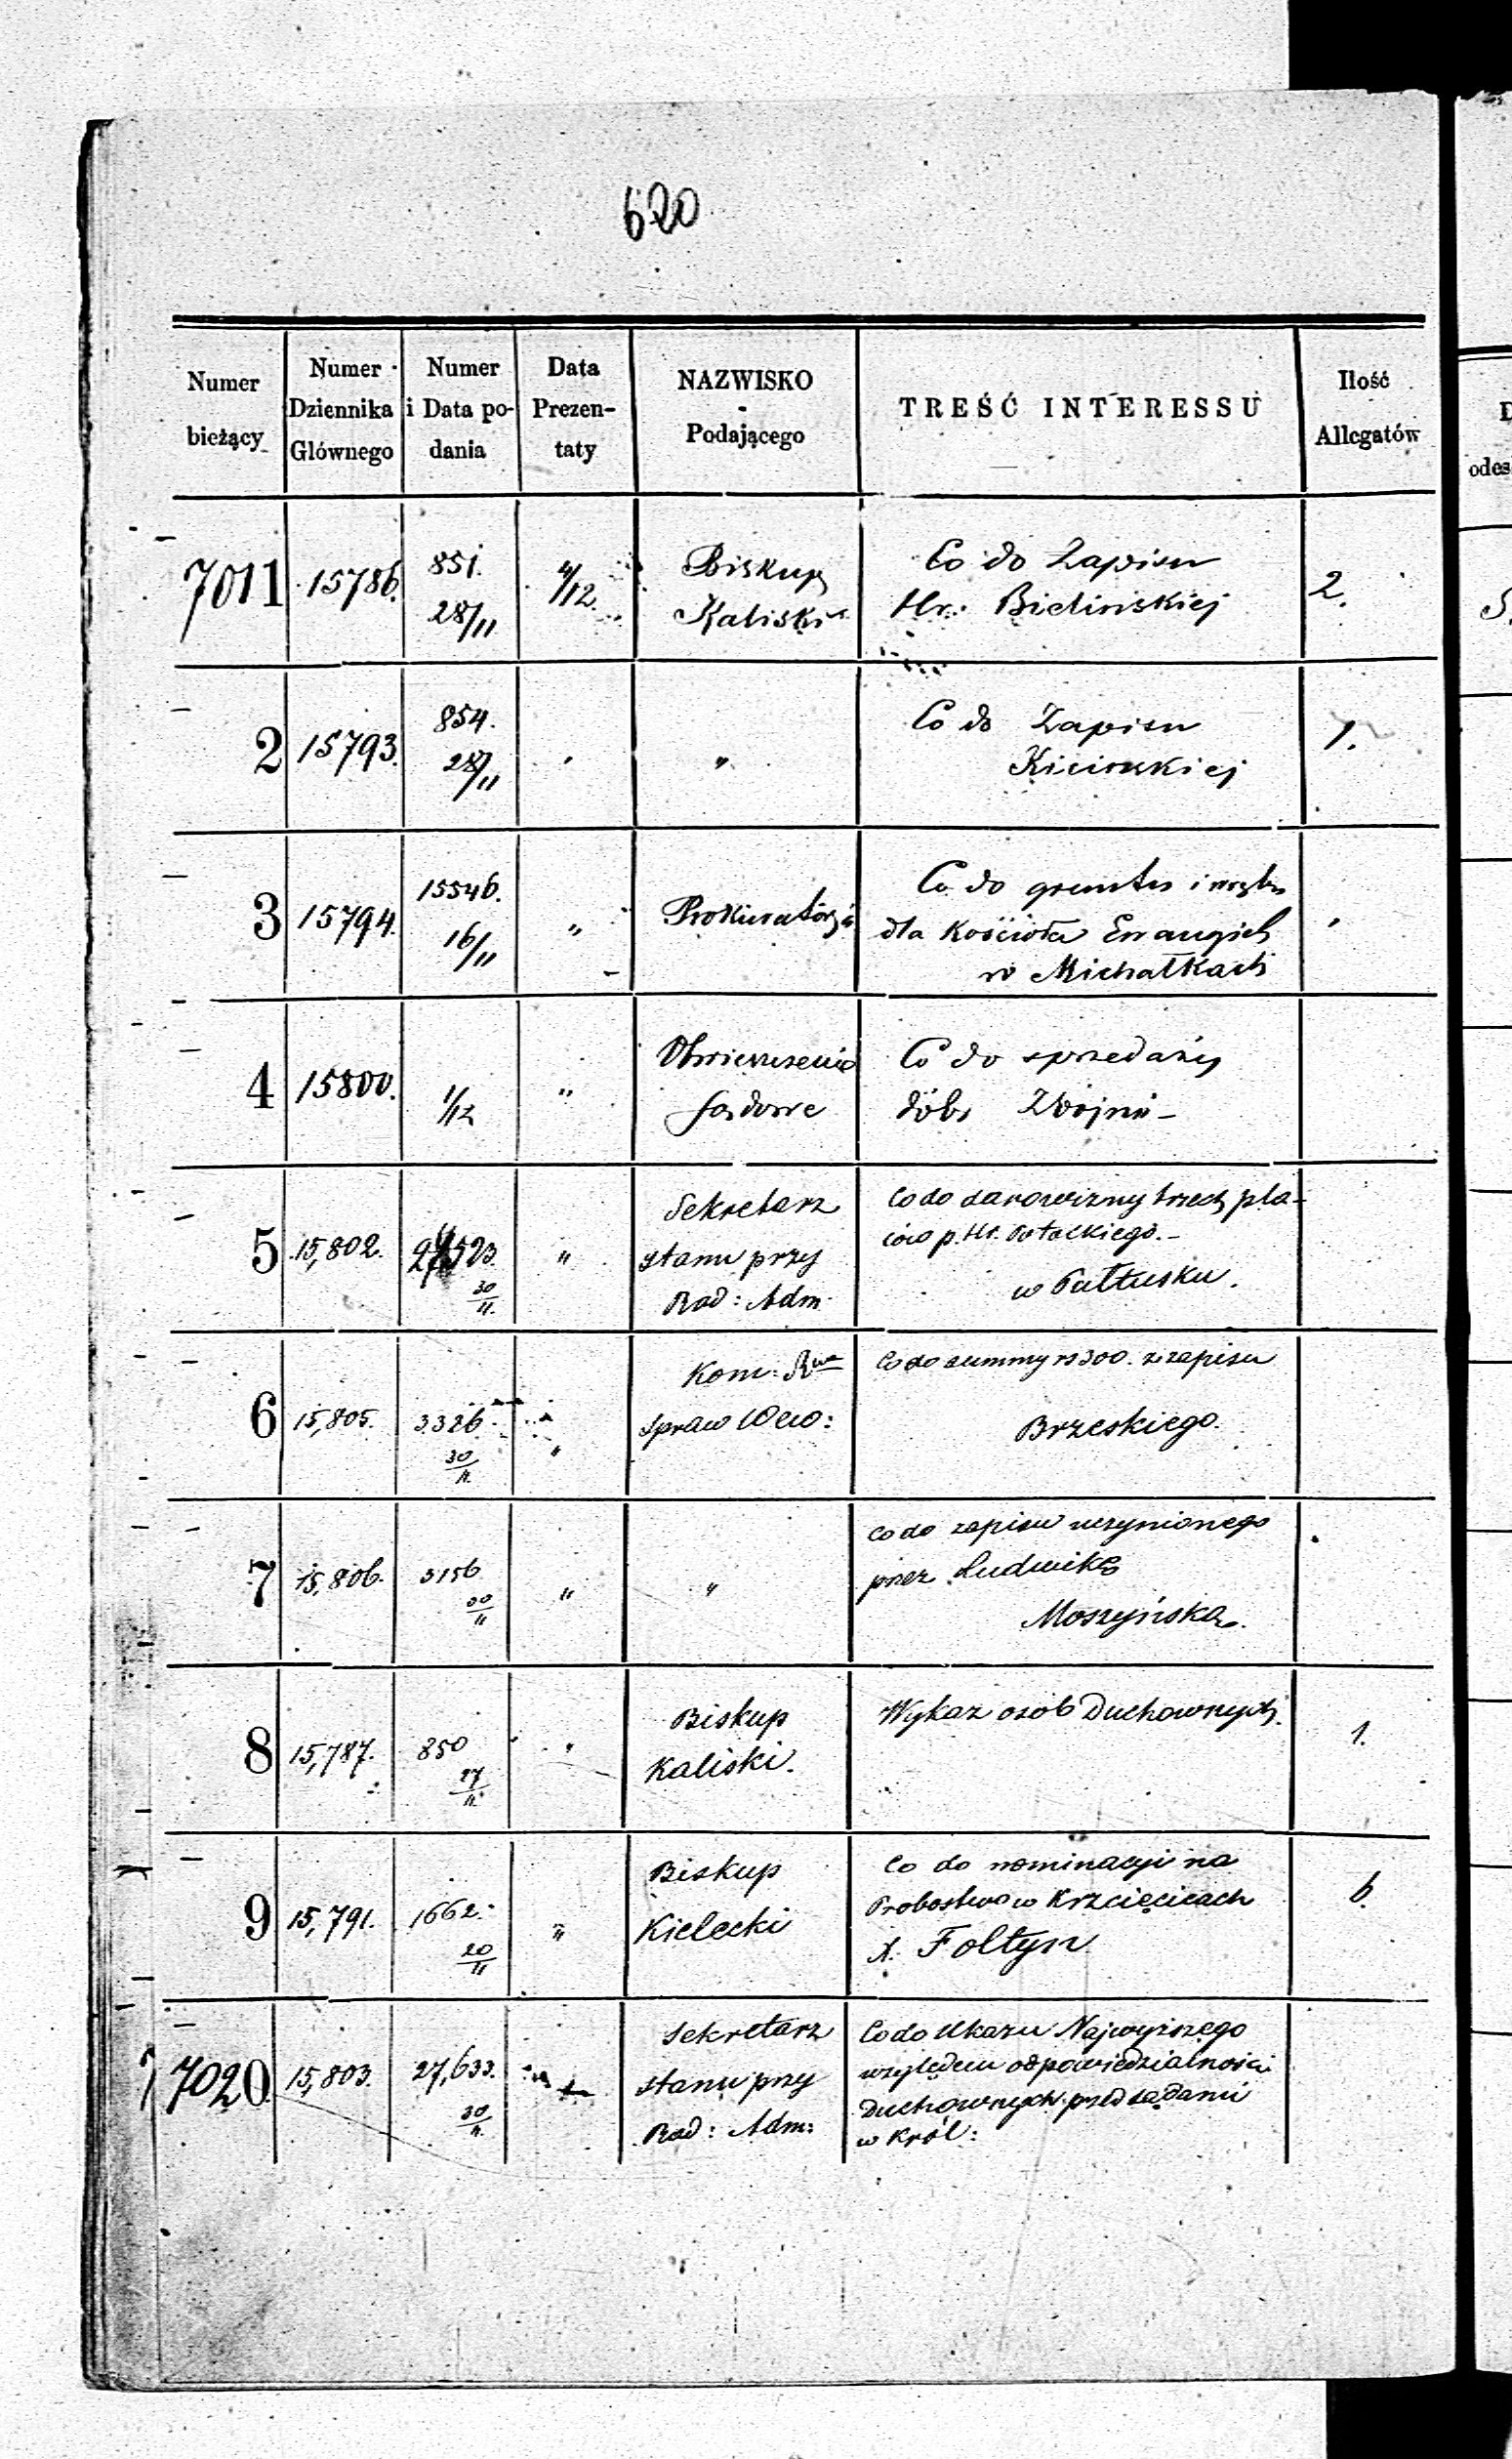 620
Numer bieżący
Numer Dziennika Głównego
Numer i Data podania
Data Prezentaty
NAZWISKO Podającego
TREŚĆ INTERESSU
Ilość Allegatów
7011 15786. 851. 28/11 4/12. Biskup Kaliski Co do Zapisu
Hr: Bielińskiej 2.
2 15793. 854. 28/11 " " Co do Zapisu
Kicińskiej 1.
3 15794. 15546. 16/11 " Prokuratorja Co do gruntu i
dla Kościoła Ewangieli
w Michałkach
4 15800. 1/12 " Obwieszczenie Sądowe Co do sprzedaży
dóbr
5 15,802. 27523. 30/11 " Sekretarz
stanu przy
Rad: Adm. Co do darowizny trzech pla-
ców p. Hr. Potockiego.-
w Pułtusku.
6 15,805. 3326. 30/11 " Kom: Rwa
Spraw Wew: Co do summy rs 300. z zapisu
Brzeskiego.
7 15,806. 5156 30/11 " " Co do zapisu uczynionego
przez Ludwikę
Moszyńską.
8 15,787. 850 27/11 " Biskup
Kaliski. Wykaz osób Duchownych. 1.
9 15,791. 1662. 20/11 " Biskup
Kielecki Co do nominacyi na
Probostwo w Krzcięcicach
X. Foltyn 6.
7020 15,803. 27,633. 30/11 " Sekretarz
stanu przy
Rad: Adm: Co do Ukazu Najwyższego
względem odpowiedzialności
Duchownych przed sądami
w Król: